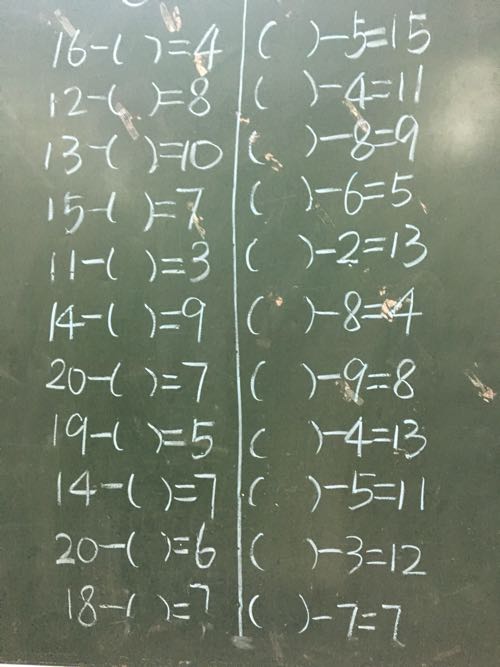 16-( )=4
12-( )=8
13-( )=10
15-( )=7
11-( )=3
14-( )=9
20-( )=7
19-( )=5
14-( )=7
20-( )=6
18-( )=7
( )-5=15
( )-4=11
( )-8=9
( )-6=5
( )-2=13
( )-8=4
( )-9=8
( )-4=13
( )-5=11
( )-3=12
( )-7=7